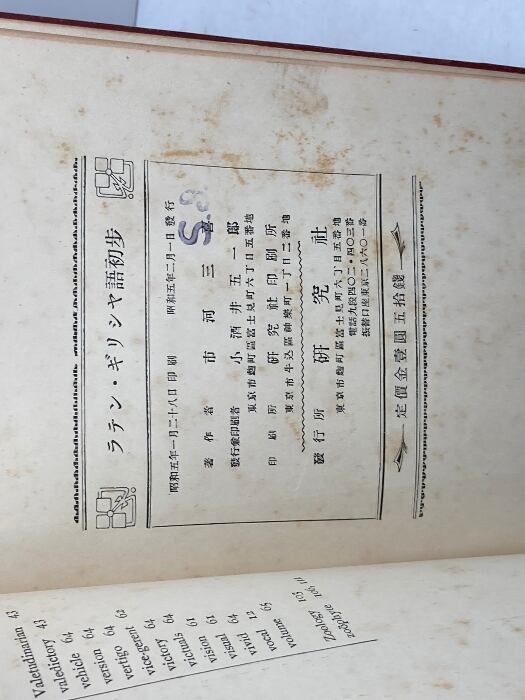 ラテン・ギリシヤ語初歩
昭和五年一月二十八日印刷
昭和五年二月一日發行
著作者 市河三喜
發行兼印刷者 小酒井五一郎
東京市麴町區富士見町六丁目五番地
印刷所 研究社印刷所
東京市牛込區神樂町一丁目二番地
發行所 研究社
東京市麴町區富士見町六丁目五番地
電話九段四〇二・四〇三番
振替口座東京二八六〇一番
定價金壹圓五拾錢
Valetudinarian 43
valedictory 43
vehicle 64
vehicle 64
version 64
vertigo 62
vice-gerent 64
victory 64
victuals 61
vision 61
visual 64
vivid 12
vocal 65
volume
Zoology 105, 111
zoophyte 106, 111